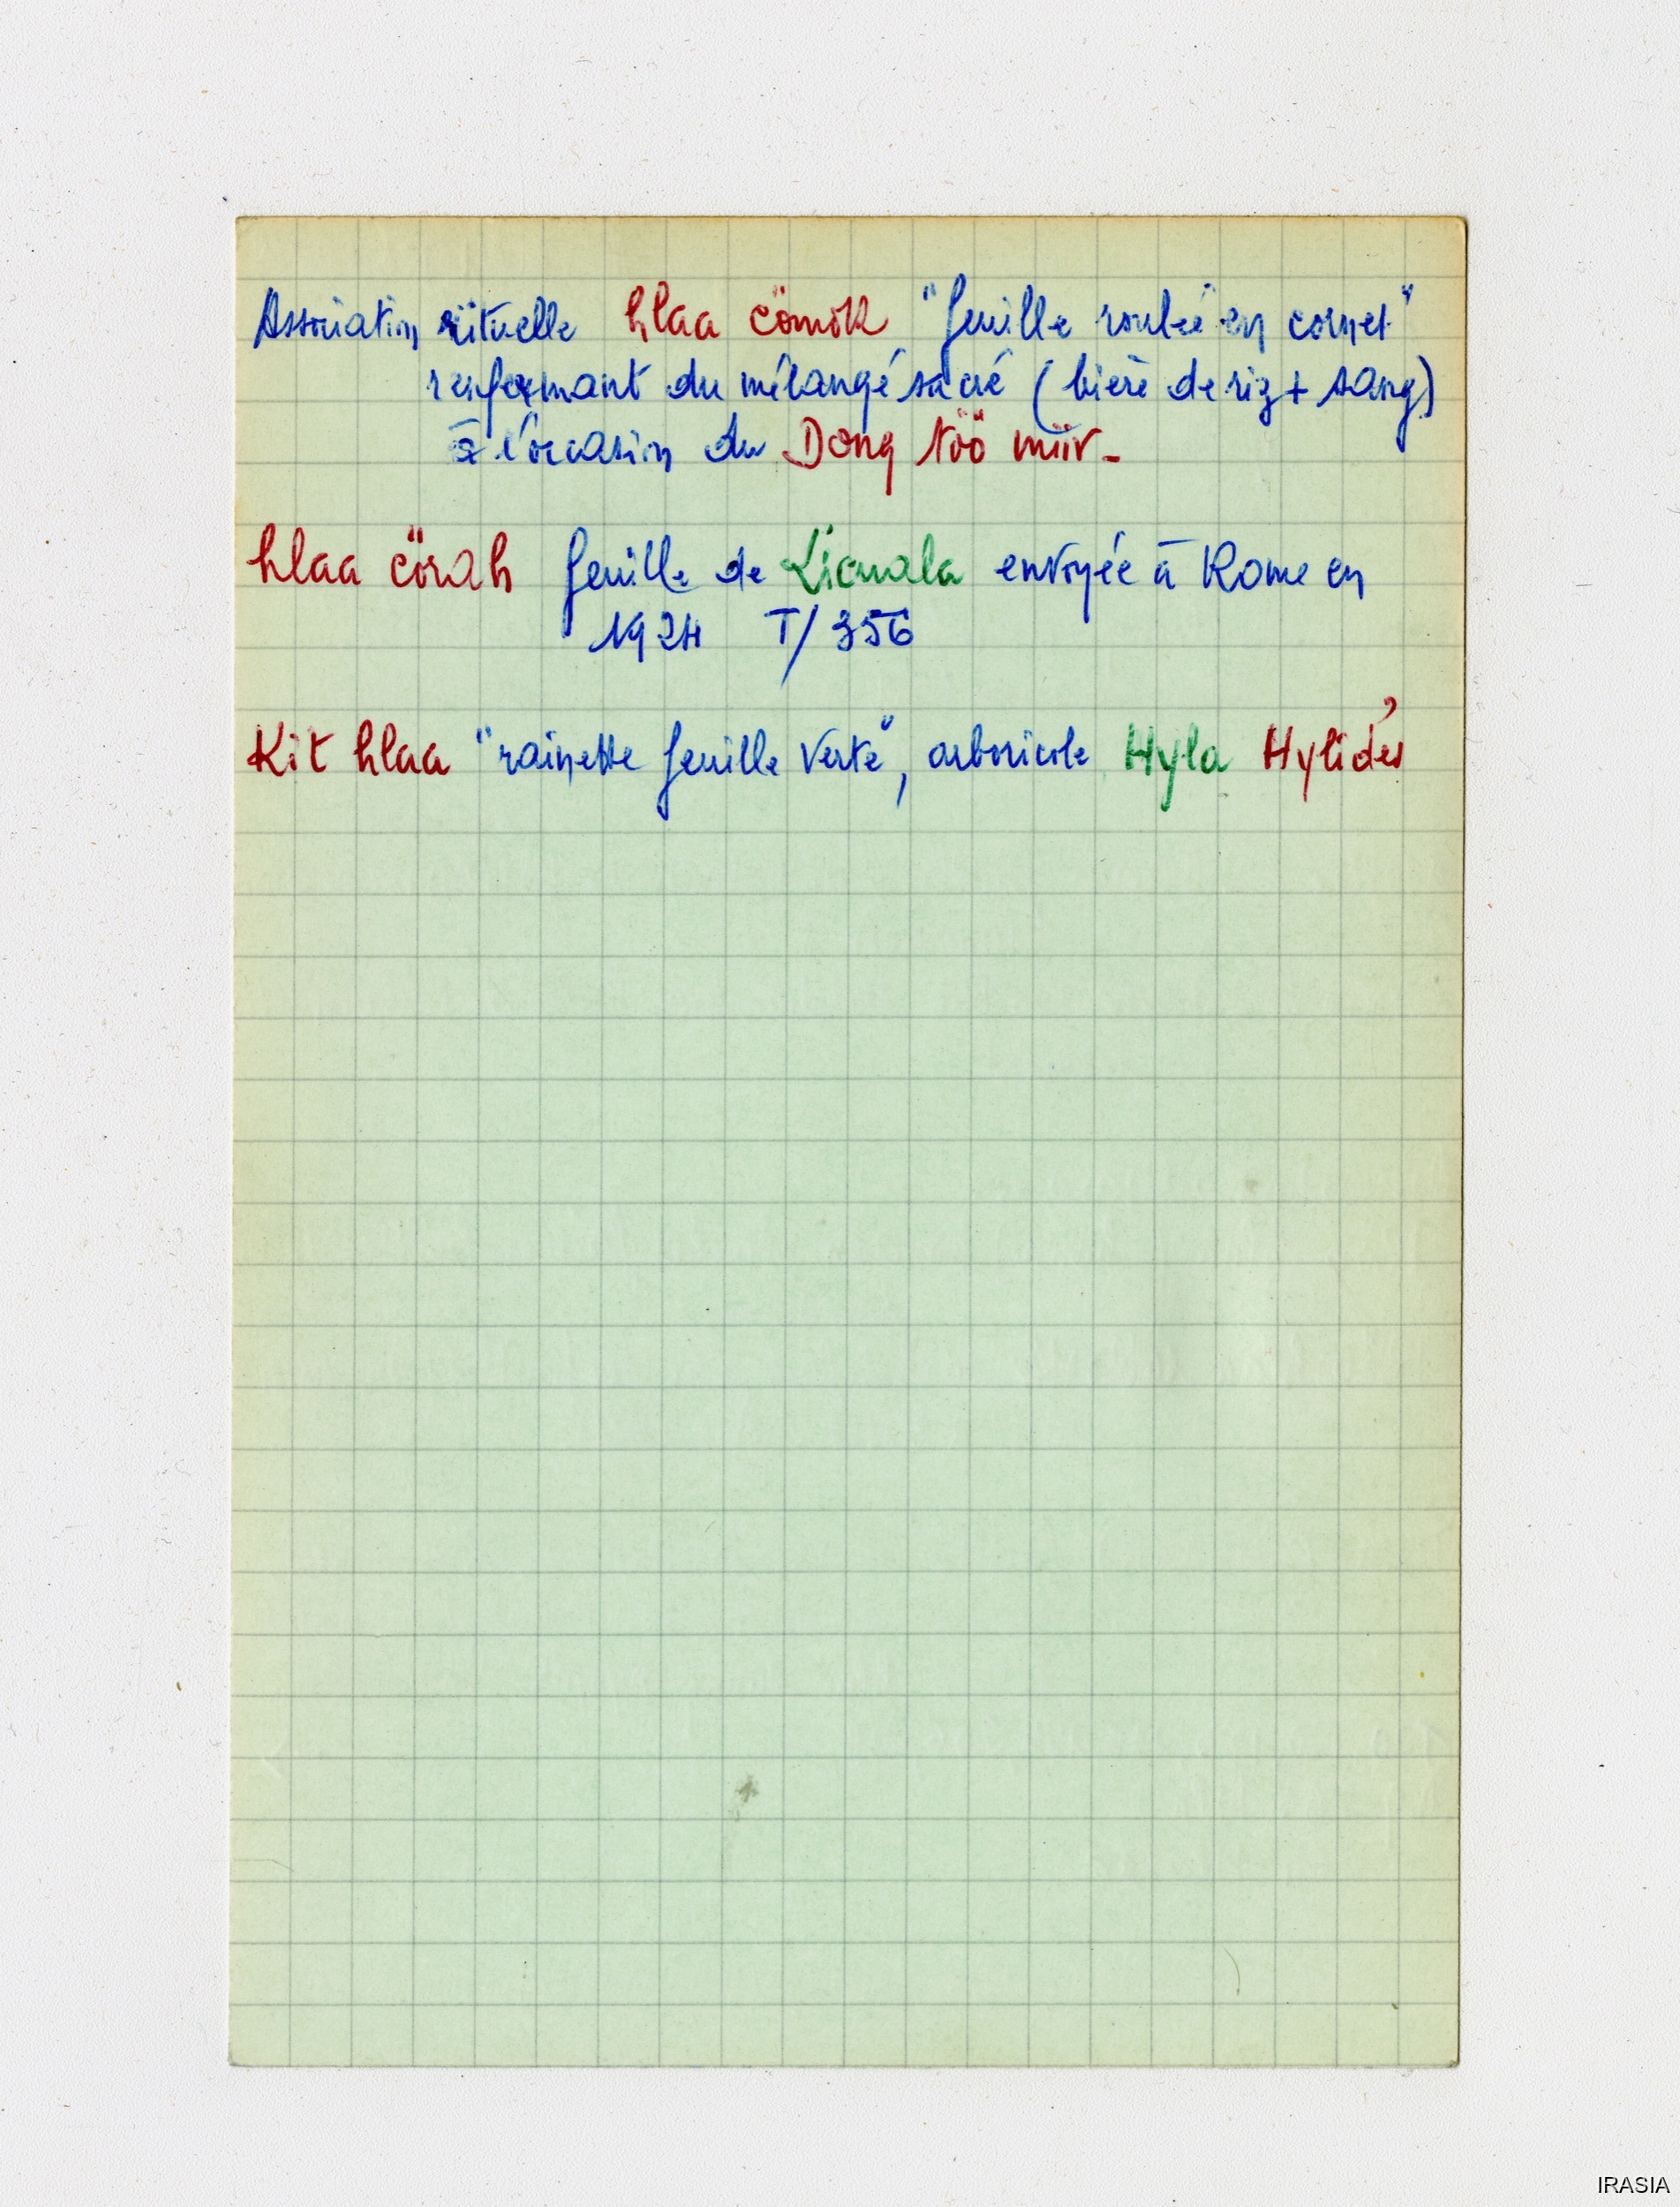 Association rituelle hlaa cömôk "feuille roulée en cornet"
renfermant du mélangé sacré (bière de riz + sang)
à l'occasion du Dong töö miir -
hlaa cörah feuille de Licuala envoyée à Rome en
1924 T/356
Kit hlaa "rainette feuille verte", arboricole Hyla Hylidés
IRASIA